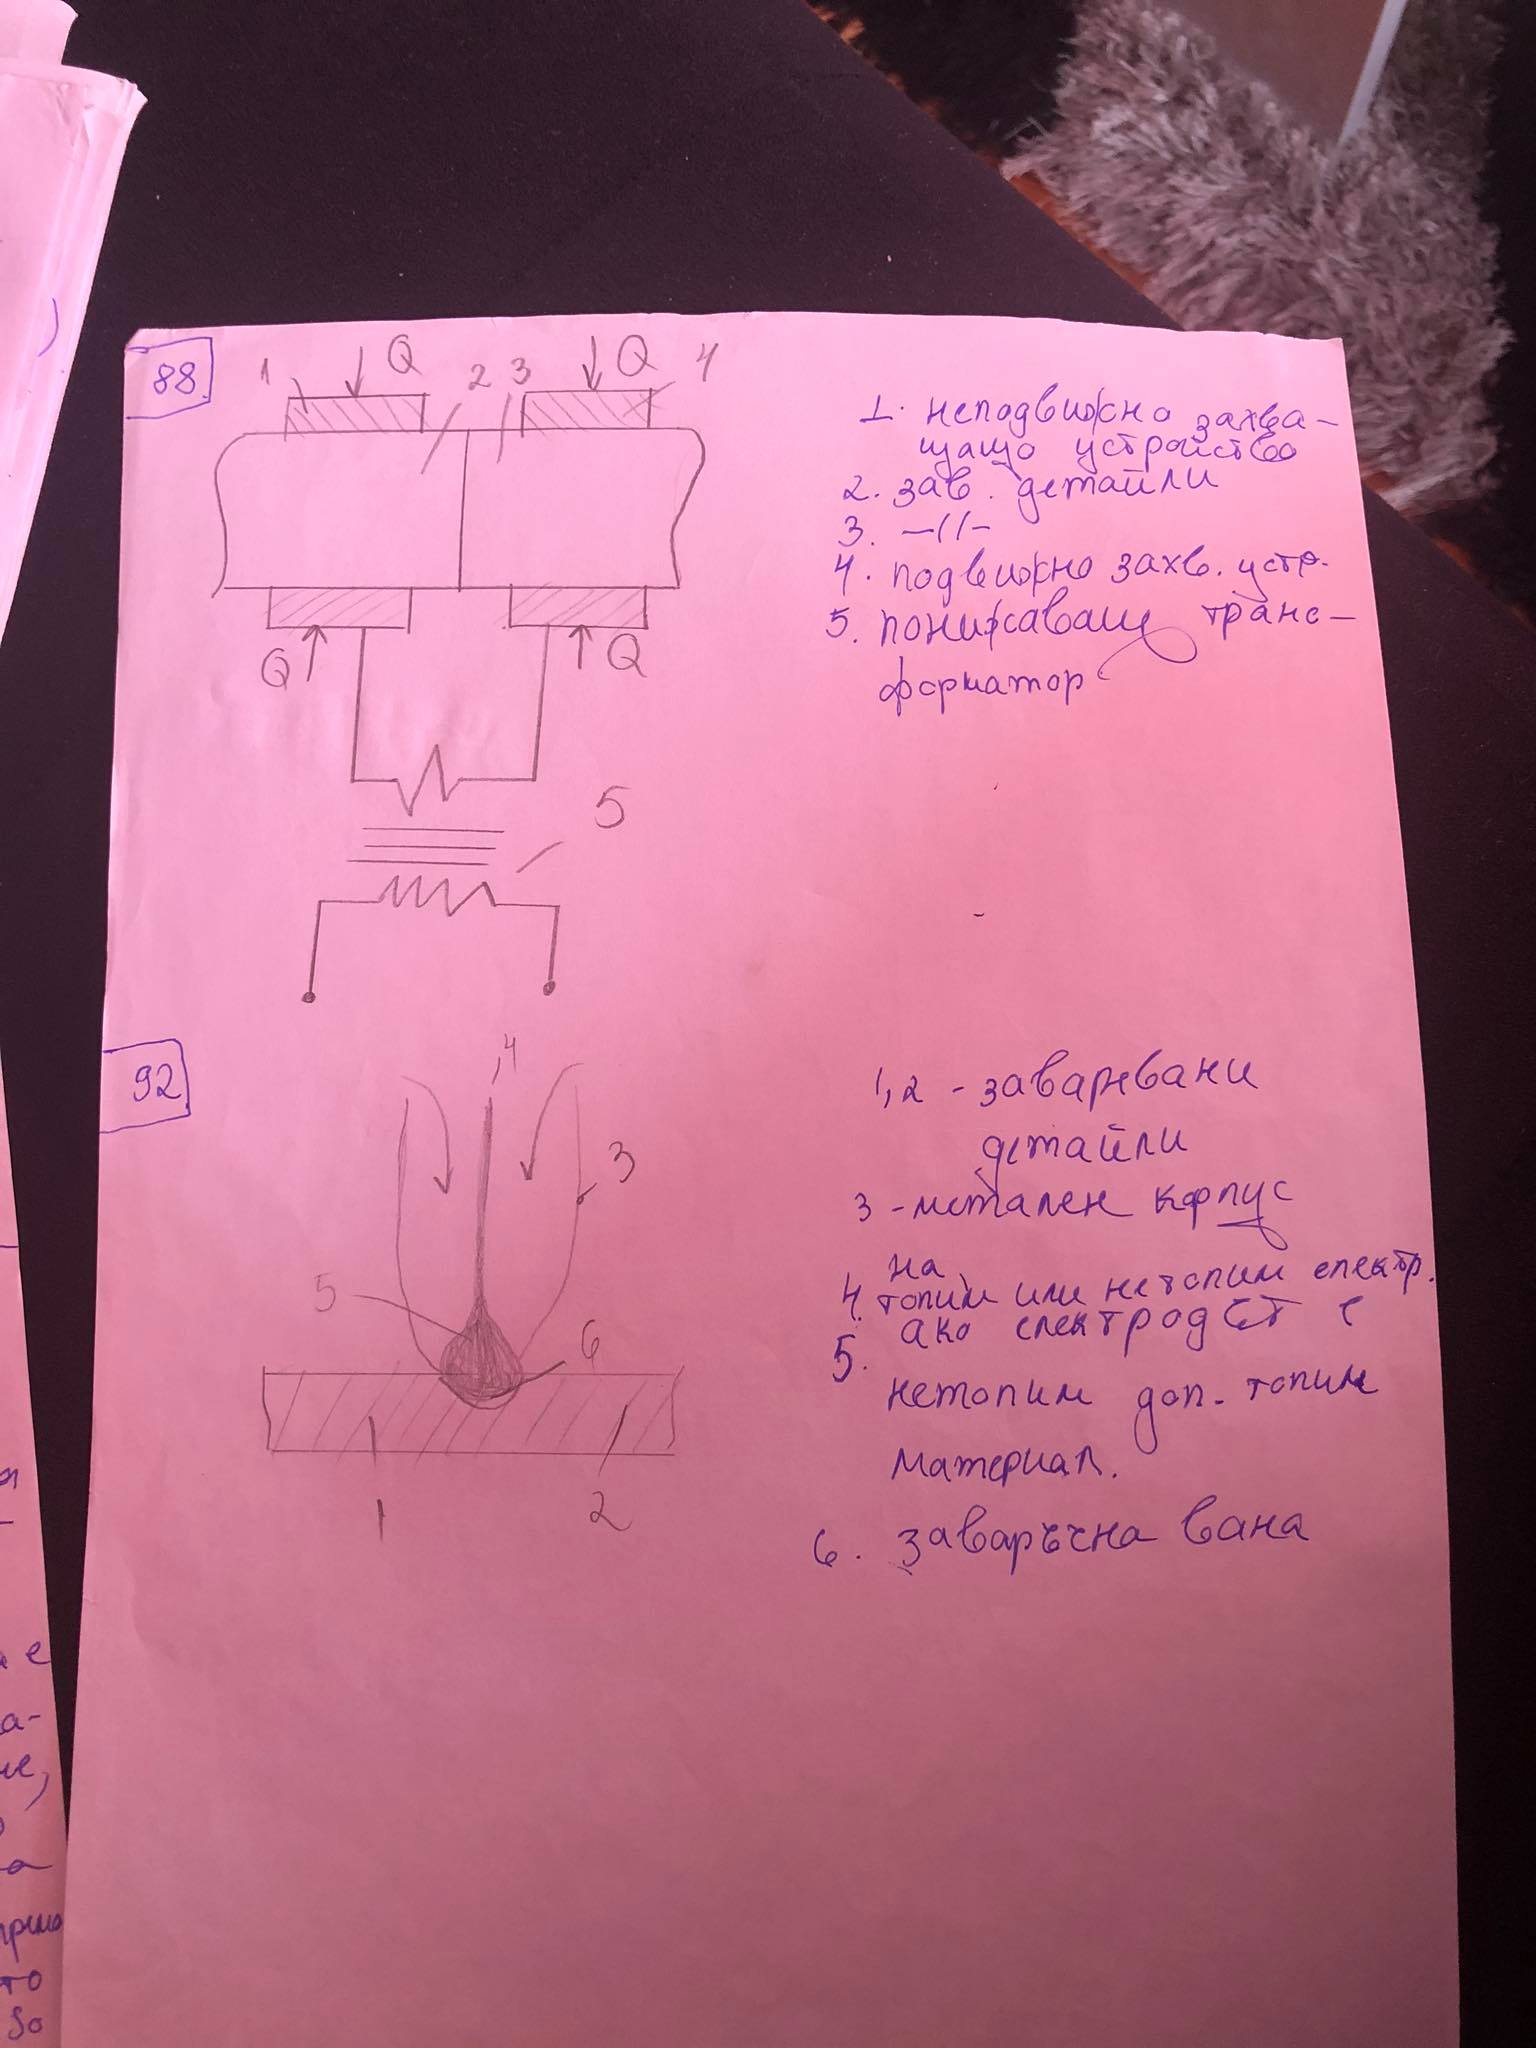 88
1 Q 2 3 Q 4
Q Q
5
1. неподвижно захва-
щащо устройство
2. зав. детайли
3. -//-
4. подвижно захв. устр.
5. понижаващ транс-
форматор
92
4
3
5
6
1 2
1,2 - заварявани
детайли
3 - метален корпус
на
4. топим или нетопим електр.
5. ако електродът е
нетопим доп. топим
материал.
6. заваръчна вана
)
я
е
а-
ие,
а
то